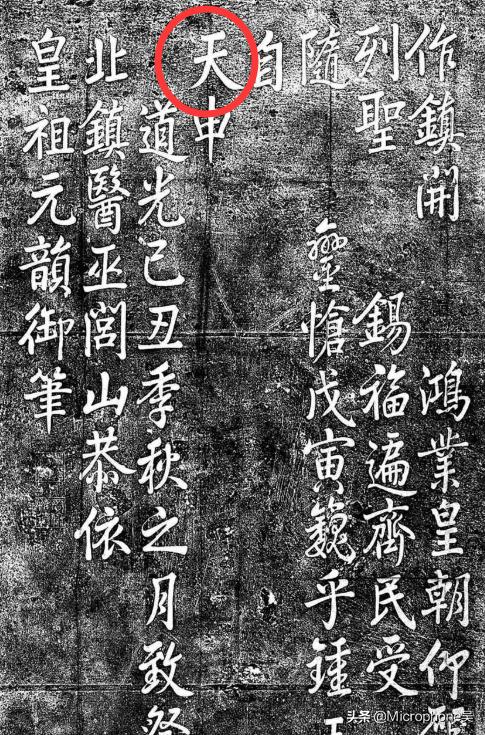 作鎮開 鴻業皇朝仰
列聖 錫福遍齊民受
隨 鑾愴戊寅巍乎鍾
自
天申
道光己丑季秋之月致祭
北鎮醫巫閭山恭依
皇祖元韻御筆
头条 @Microphone吴